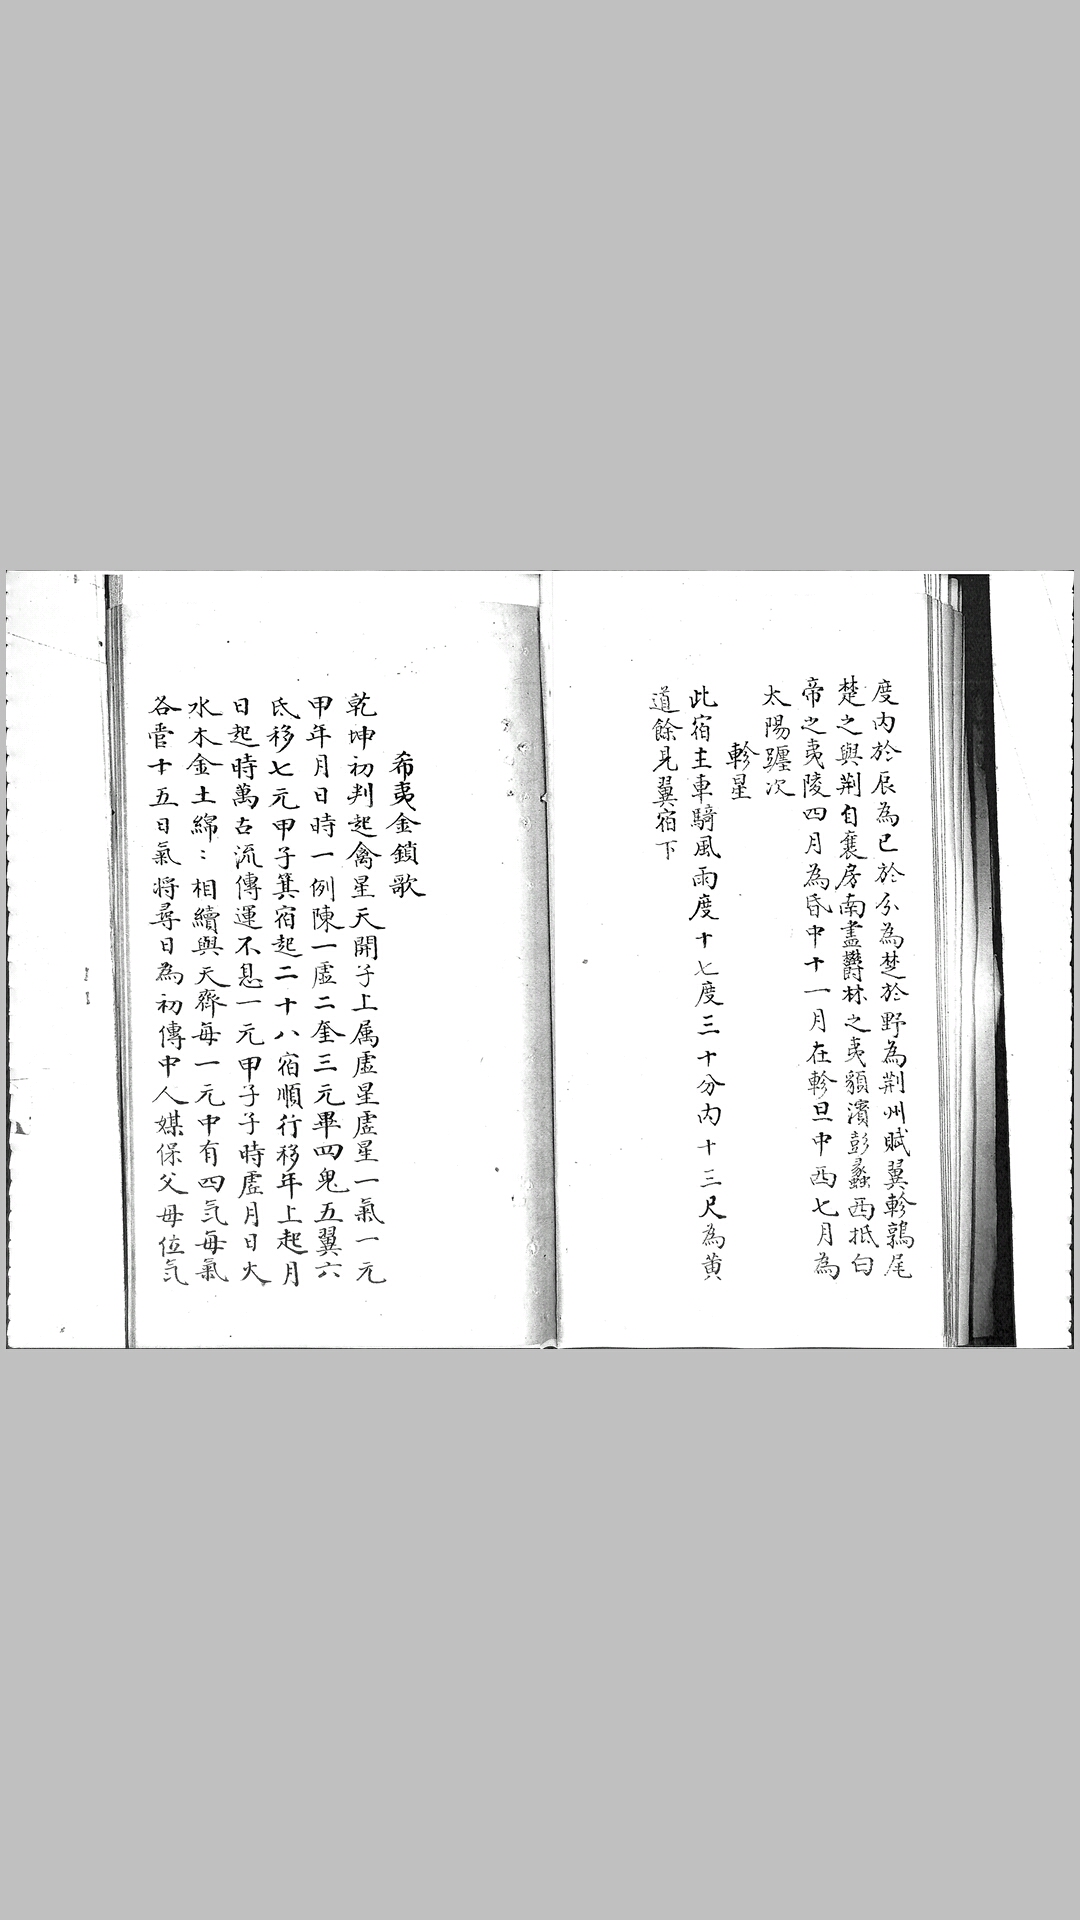 度内於辰為巳於分為楚於野為荆州賦翼軫鶉尾
楚之與荆自襄房南盡欝林之夷貊濱彭蠡西抵白
帝之夷陵四月為昏中十一月在軫旦中西七月為
太陽躔次
軫星
此宿主車騎風雨度十七度三十分内十三尺為黄
道餘見翼宿下
希夷金鎖歌
乾坤初判起禽星天開子上属虚星虚星一氣一元
甲年月日時一例陳一虚二奎三元畢四鬼五翼六
氐移七元甲子箕宿起二十八宿順行移年上起月
日起時萬古流傳運不息一元甲子子時虚月日火
水木金土綿〻相續與天齊每一元中有四气每氣
各管十五日氣将尋日為初傳中人媒保父母位气